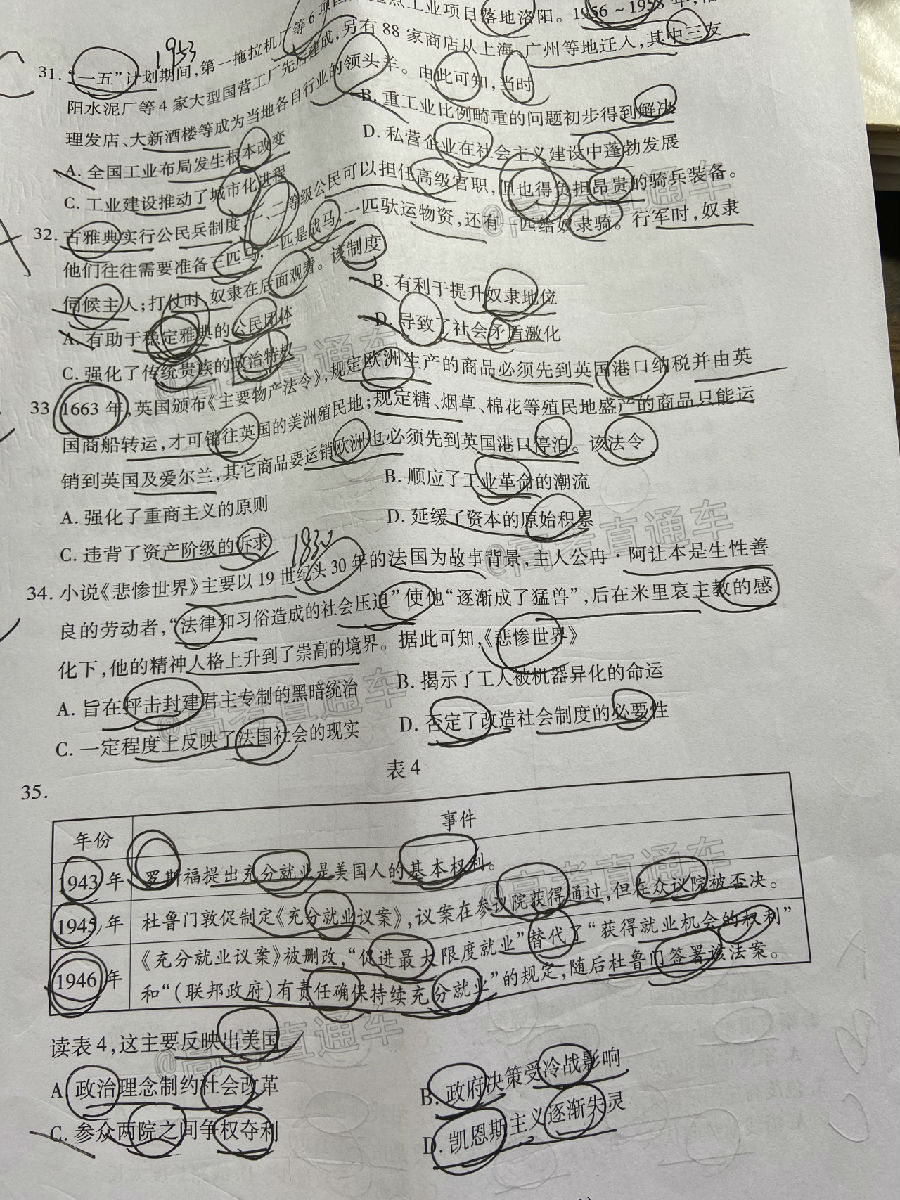 工业项目落地洛阳。1956～1958年,
31. “一五”计划期间,第一拖拉机厂等6
1953
阳水泥厂等4家大型国营工厂先后建成,另有88家商店从上海、广州等地迁入,其中三友
理发店、大新酒楼等成为当地各自行业的领头羊。由此可知,当时
A. 全国工业布局发生根本改变
B. 重工业比例畸重的问题初步得到解决
C. 工业建设推动了城市化进程
D. 私营企业在社会主义建设中蓬勃发展
32. 古雅典实行公民兵制度,一、二等级公民可以担任高级官职,但也得负担昂贵的骑兵装备。
他们往往需要准备三匹马,一匹是战马,一匹驮运物资,还有一匹给奴隶骑。行军时,奴隶
伺候主人;打仗时,奴隶在后面观看。该制度
A. 有助于稳定雅典的公民团体
B. 有利于提升奴隶地位
C. 强化了传统贵族的政治特权
D. 导致了社会矛盾激化
33. 1663年,英国颁布《主要物产法令》,规定欧洲生产的商品必须先到英国港口纳税并由英
国商船转运,才可销往英国的美洲殖民地;规定糖、烟草、棉花等殖民地盛产的商品只能运
销到英国及爱尔兰,其它商品要运销欧洲也必须先到英国港口停泊。该法令
A. 强化了重商主义的原则
B. 顺应了工业革命的潮流
C. 违背了资产阶级的诉求
D. 延缓了资本的原始积累
34. 小说《悲惨世界》主要以19世纪头30年的法国为故事背景,主人公冉·阿让本是生性善
良的劳动者,“法律和习俗造成的社会压迫”使他“逐渐成了猛兽”,后在米里哀主教的感
化下,他的精神人格上升到了崇高的境界。据此可知,《悲惨世界》
A. 旨在抨击封建君主专制的黑暗统治
B. 揭示了工人被机器异化的命运
C. 一定程度上反映了法国社会的现实
D. 否定了改造社会制度的必要性
35.
表4
年份 事件
1943年 罗斯福提出充分就业是美国人的基本权利。
1945年 杜鲁门敦促制定《充分就业议案》,议案在参议院获得通过,但在众议院被否决。
1946年 《充分就业议案》被删改,“促进最大限度就业”替代了“获得就业机会的权利”
和“(联邦政府)有责任确保持续充分就业”的规定,随后杜鲁门签署该法案。
读表4,这主要反映出美国
A. 政治理念制约社会改革
B. 政府决策受冷战影响
C. 参众两院之间争权夺利
D. 凯恩斯主义逐渐失灵
@高考直通车
@高考直通车
@高考直通车
@高考直通车
@高考直通车
@高考直通车